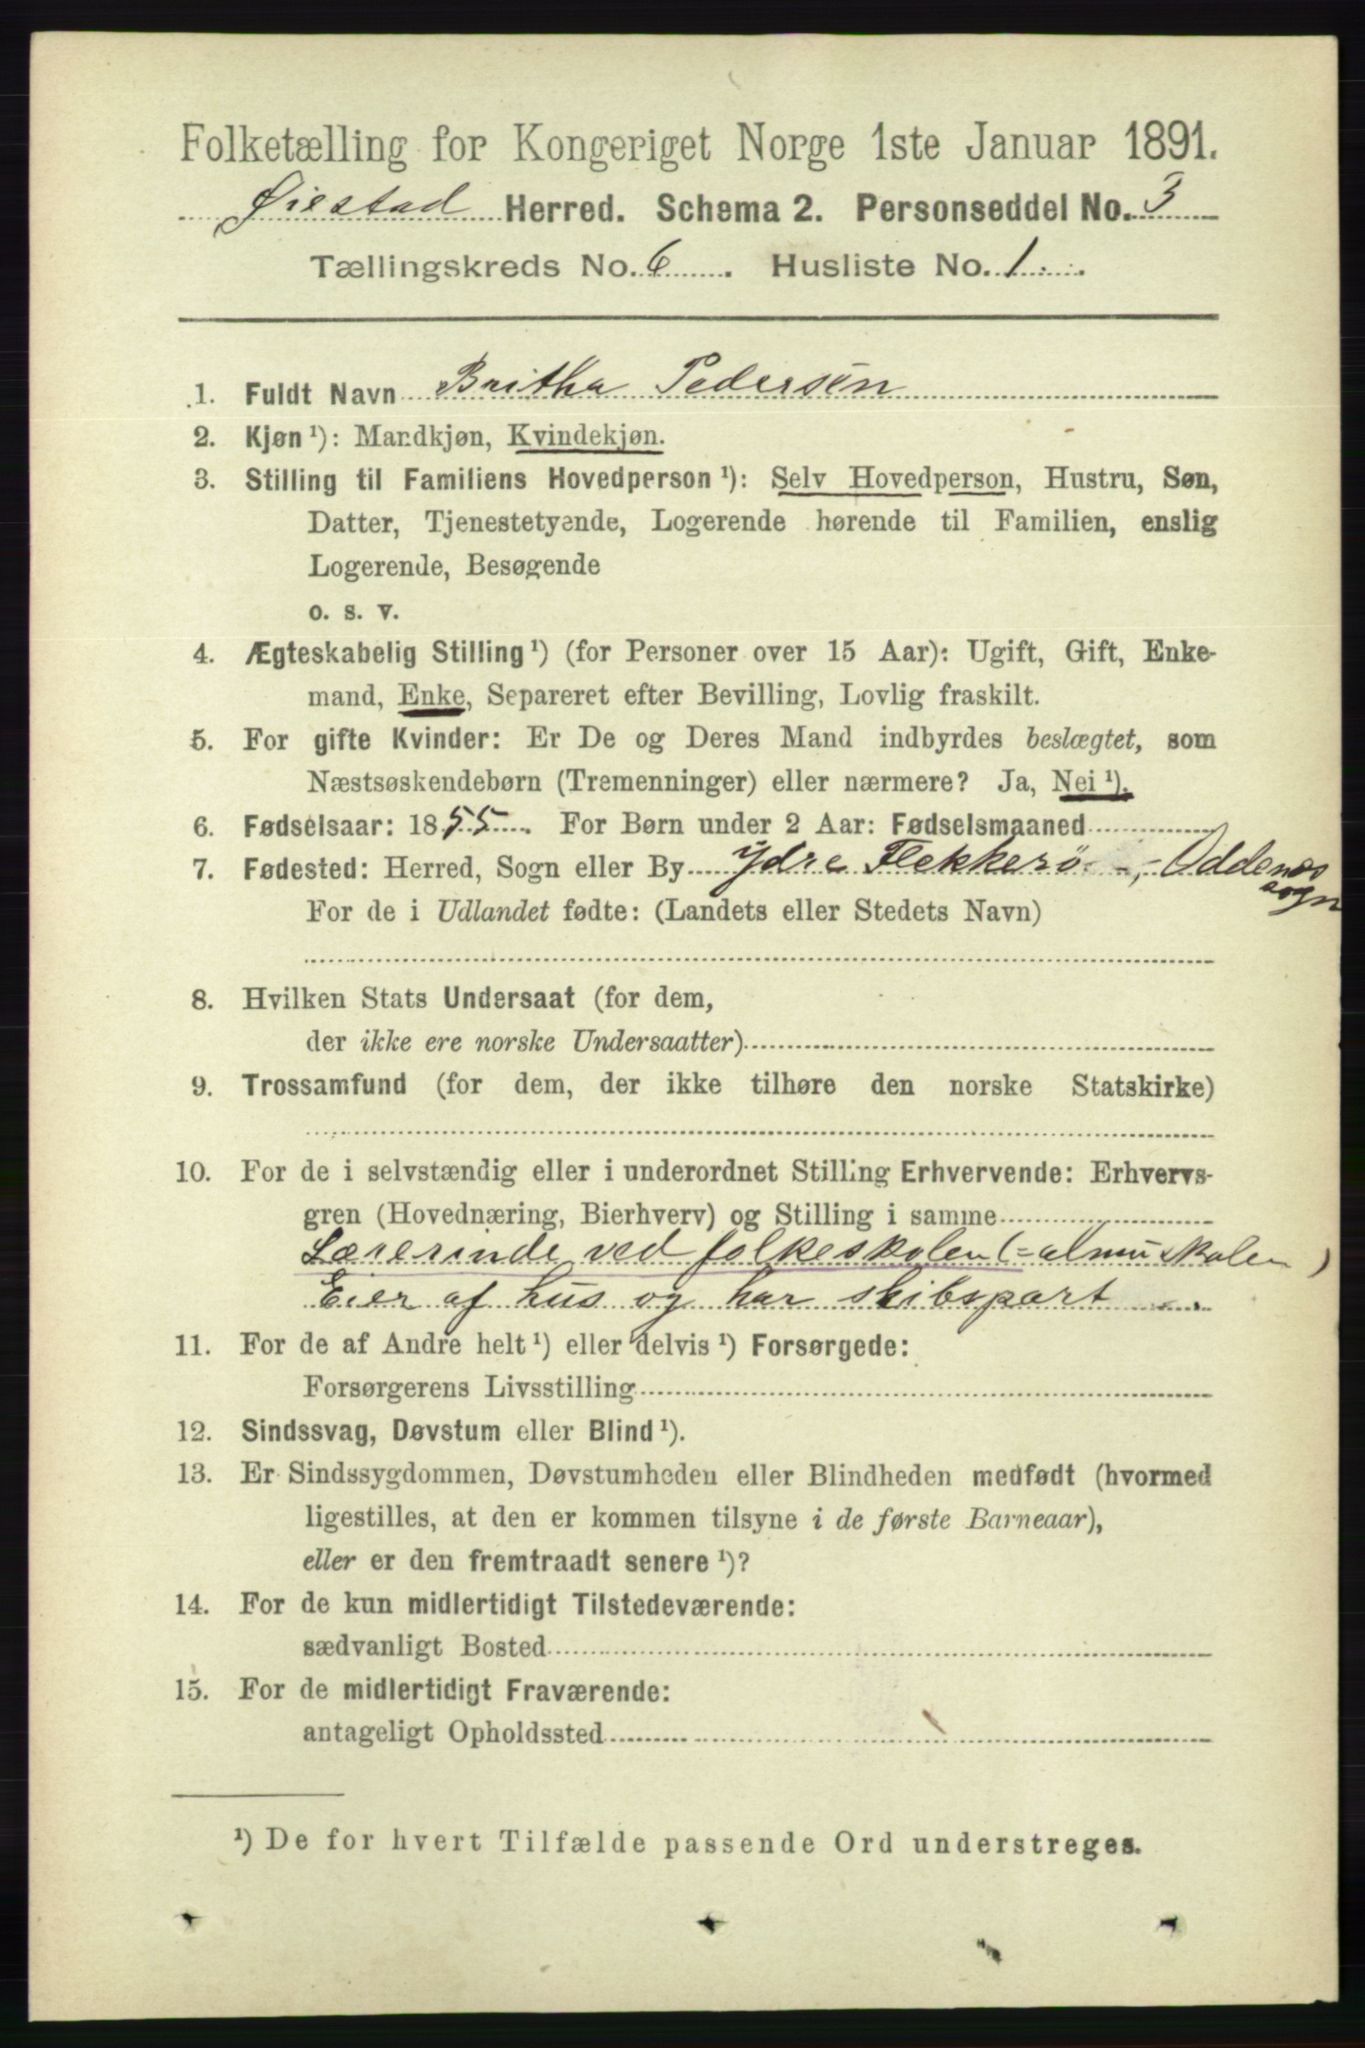 Folketælling for Kongeriget Norge 1ste Januar 1891.
Øiestad Herred. Schema 2. Personseddel No. 3
Tællingskreds No. 6. Husliste No. 1.
1. Fuldt Navn Britha Pedersen
2. Kjøn ¹): Mandkjøn, Kvindekjøn.
3. Stilling til Familiens Hovedperson ¹): Selv Hovedperson, Hustru, Søn,
Datter, Tjenestetyende, Logerende hørende til Familien, enslig
Logerende, Besøgende
o. s. v.
4. Ægteskabelig Stilling ¹) (for Personer over 15 Aar): Ugift, Gift, Enke-
mand, Enke, Separeret efter Bevilling, Lovlig fraskilt.
5. For gifte Kvinder: Er De og Deres Mand indbyrdes beslægtet, som
Næstsøskendebørn (Tremenninger) eller nærmere? Ja, Nei ¹).
6. Fødselsaar: 1855. For Børn under 2 Aar: Fødselsmaaned
7. Fødested: Herred, Sogn eller By Ydre Flekkerø -, Oddenes
sogn
For de i Udlandet fødte: (Landets eller Stedets Navn)
8. Hvilken Stats Undersaat (for dem,
der ikke ere norske Undersaatter)
9. Trossamfund (for dem, der ikke tilhøre den norske Statskirke)
10. For de i selvstændig eller i underordnet Stilling Erhvervende: Erhvervs-
gren (Hovednæring, Bierhverv) og Stilling i samme
Lærerinde ved folkeskolen (=almuskolen)
Eier af hus og har skibspart
11. For de af Andre helt ¹) eller delvis ¹) Forsørgede:
Forsørgerens Livsstilling
12. Sindssvag, Døvstum eller Blind ¹).
13. Er Sindssygdommen, Døvstumheden eller Blindheden medfødt (hvormed
ligestilles, at den er kommen tilsyne i de første Barneaar),
eller er den fremtraadt senere ¹)?
14. For de kun midlertidigt Tilstedeværende:
sædvanligt Bosted
15. For de midlertidigt Fraværende:
antageligt Opholdssted
¹) De for hvert Tilfælde passende Ord understreges.